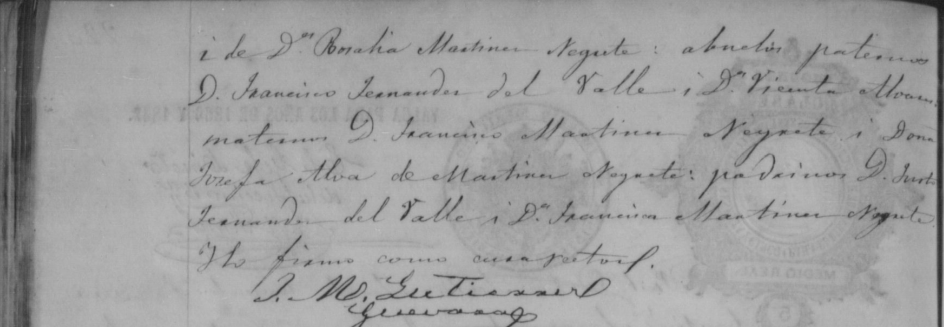 i de Dª Rosalia Martinez Negrete: abuelos paternos
D. Francisco Fernandez del Valle i Dª Vicenta
maternos D. Francisco Martinez Negrete i Doña
Josefa Alva de Martinez Negrete: padrinos D. Justo
Fernandez del Valle i Dª Francisca Martinez Negrete.
I lo firmo como cura rector.
J. M. Gutierrez
Guevara
MEDIO REAL